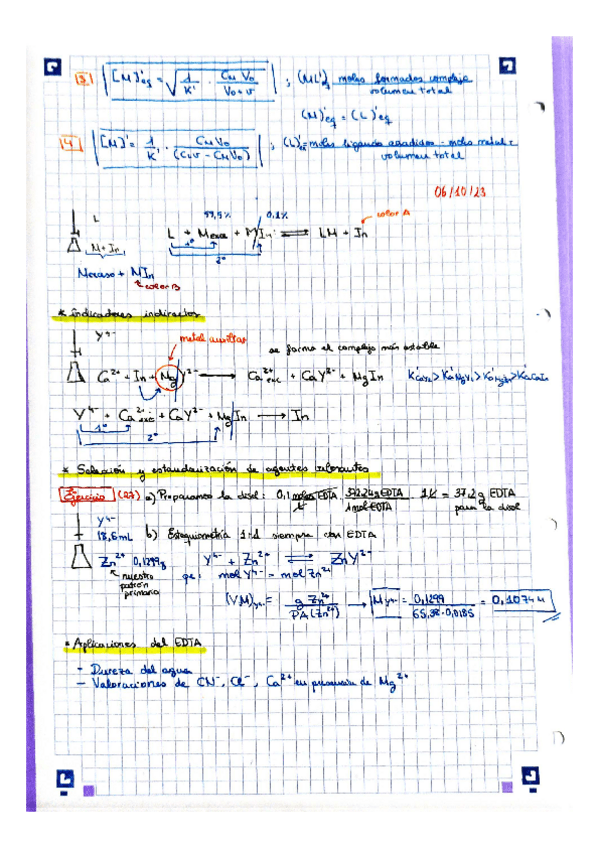 3) [M]'eq = √(1/K' · CM V0/V0+v) ; (ML')eq = moles formados complejo / volumen total
(M)'eq = (L)'eq
4) [M]' = 1/K' · CM V0/(CLv - CM V0) ; (L)'ex = moles ligando añadidos - moles metal / volumen total
06/10/23
99,9% 0,1% color A
L L + Mexc + MIn ⇌ LM + In
M + In 1° 2°
Mexceso + MIn
color B
* Indicadores indirectos
Y4- metal auxiliar
se forma el complejo más estable
Ca2+ + In + MgY2- → Ca2+exc + CaY2- + MgIn K'CaY2- > K'MgY2- > K'MgIn > K'CaIn
Y4- + Ca2+exc + CaY2- + MgIn → In
1°
2°
* Selección y estandarización de agentes valorantes
Ejercicio (27) a) Preparamos la disol: 0,1 moles EDTA / L · 372,24 g EDTA / 1 mol EDTA · 1L = 37,2 g EDTA para la disol
Y4-
18,5 mL b) Estequiometría 1:1 siempre con EDTA
Zn2+ 0,1299g Y4- + Zn2+ ⇌ ZnY2-
nuestro patrón primario
pe: mol Y4- = mol Zn2+
(V·M)Y4- = g Zn2+ / PA(Zn2+) → MY4- = 0,1299 / 65,38 · 0,0185 = 0,1074 M
* Aplicaciones del EDTA
- Dureza del agua
- Valoraciones de CN-, Cl-, Ca2+ en presencia de Mg2+